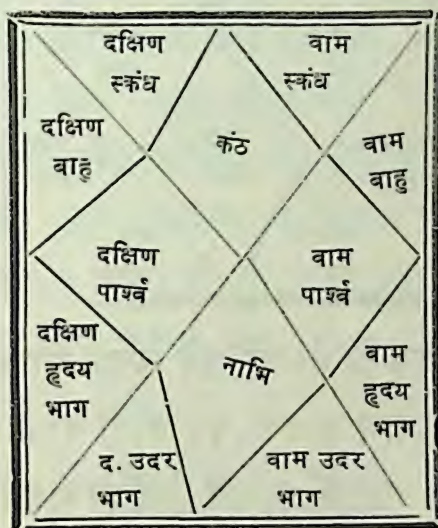 दक्षिण
स्कंध
वाम
स्कंध
दक्षिण
बाहु
कंठ
वाम
बाहु
दक्षिण
पार्श्व
वाम
पार्श्व
दक्षिण
हृदय
भाग
नाभि
वाम
हृदय
भाग
द. उदर
भाग
वाम उदर
भाग